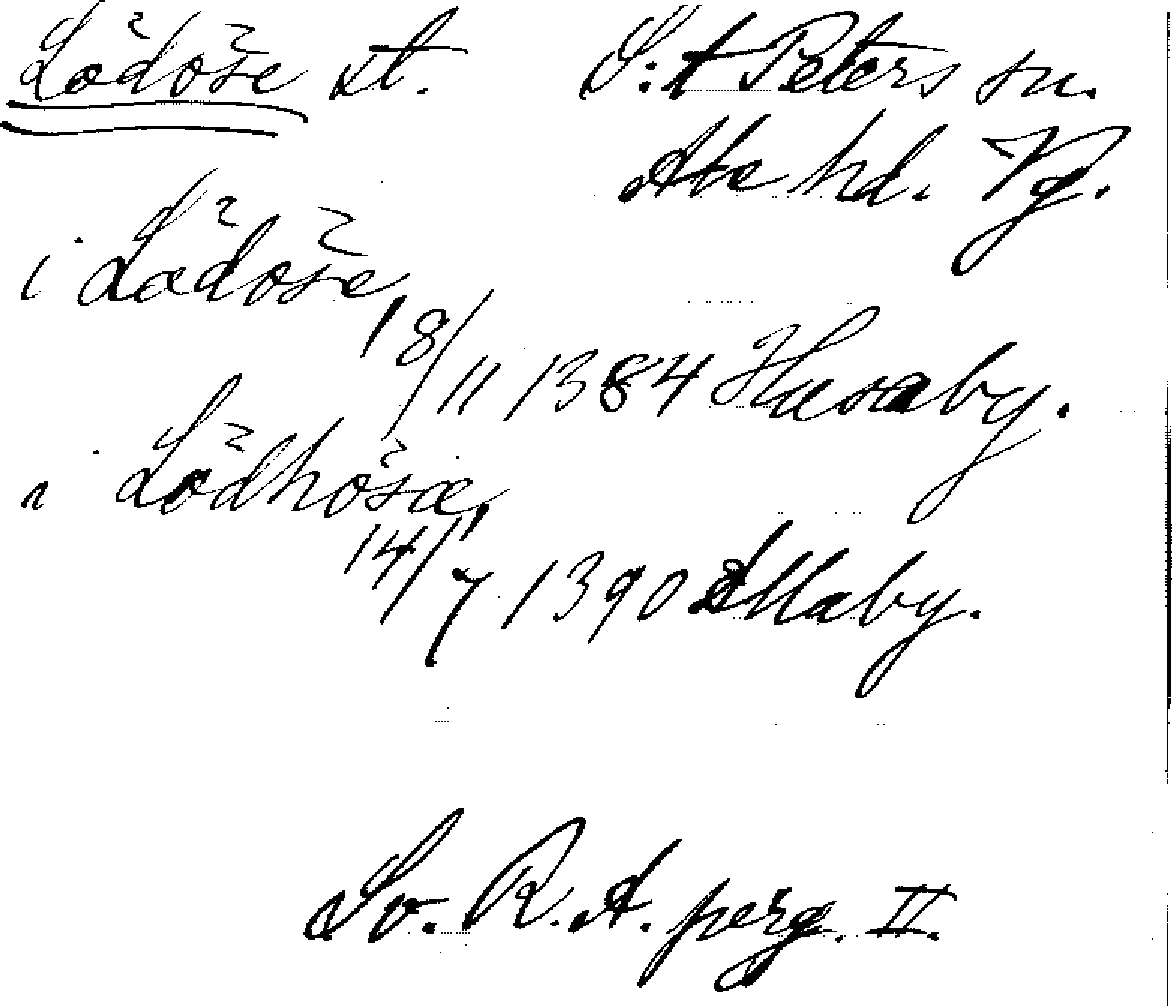 Lödöse st. S:t Peters sn.
Ale hd. Vg.
i Lödöse
18/11 1384 Husaby.
i Lödhösæ,
14/7 1390 Ållaby.
Sv. R.A. perg. II.